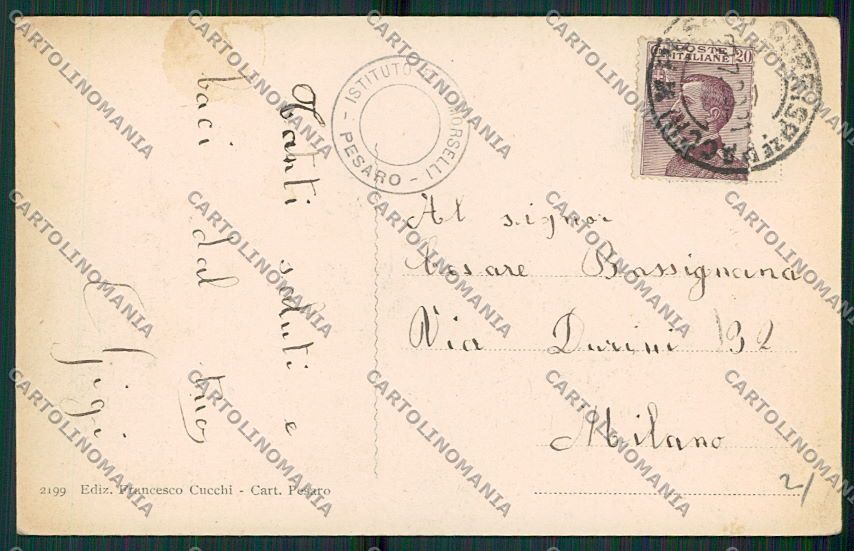 Tanti saluti e
baci dal tuo
Gigi
ISTITUTO E. MORSELLI
- PESARO -
POSTE ITALIANE 20
Al signor
Cesare Bassignana
Via Durini 32
Milano
2199 Ediz. Francesco Cucchi - Cart. Pesaro
2/
CARTOLINOMANIA